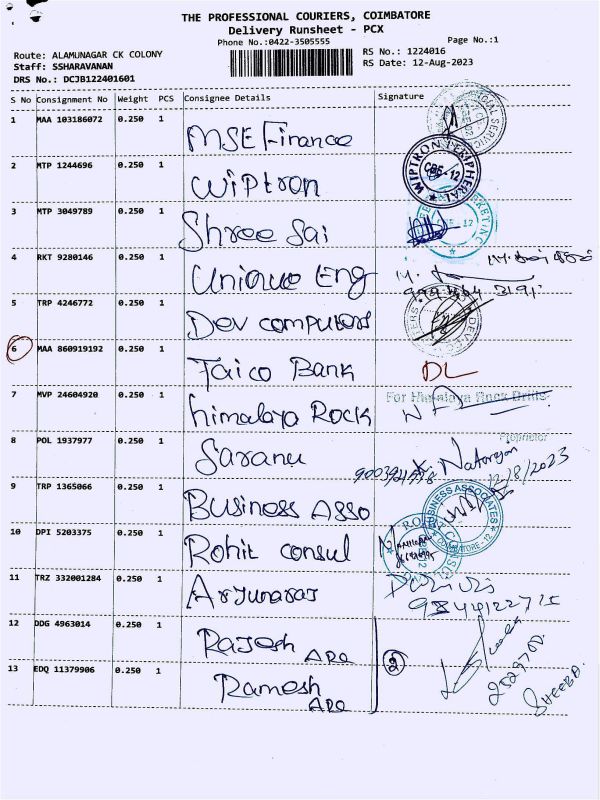 THE PROFESSIONAL COURIERS, COIMBATORE
Delivery Runsheet - PCX
Phone No.:0422-3505555 Page No.:1
Route: ALAMUNAGAR CK COLONY RS No.: 1224016
Staff: SSHARAVANAN RS Date: 12-Aug-2023
DRS No.: DCJB122401601
S No Consignment No Weight PCS Consignee Details Signature
1 MAA 103186072 0.250 1 MSE Finance
2 MTP 1244696 0.250 1 Wiptron WIPTRON PERIPHERAL CBE-12
3 MTP 3049789 0.250 1 Shree Sai
4 RKT 9280146 0.250 1 Unique Eng
5 TRP 4246772 0.250 1 Dev computers
6 MAA 860919192 0.250 1 Taico Bank DL
7 MVP 24604920 0.250 1 himalaya Rock For Himalaya Rock Drills
Proprietor
8 POL 1937977 0.250 1 Saranu Natarajan
12/8/2023
9 TRP 1365066 0.250 1 Business Asso BUSINESS ASSOCIATES COIMBATORE-12
10 DPI 5203375 0.250 1 Rohit consul
11 TRZ 332001284 0.250 1 Arjunaraj
12 DDG 4963014 0.250 1 Rajesh APA 2
13 EDQ 11379906 0.250 1 Ramesh APA SHEEBA